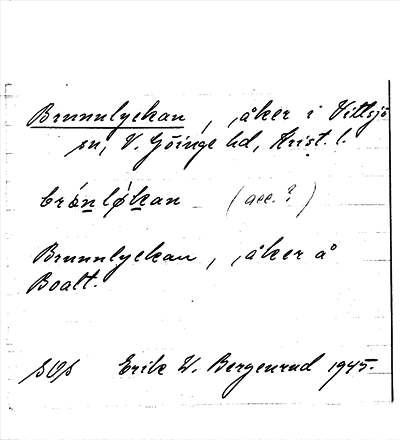 Brunnlyckan, åker i Vittsjö
sn, V. Göinge hd, Krist. l.
brónlǿkan (acc. ?)
Brunnlyckan, åker å
Boalt.
SOS Erik W. Bergenrud 1945.